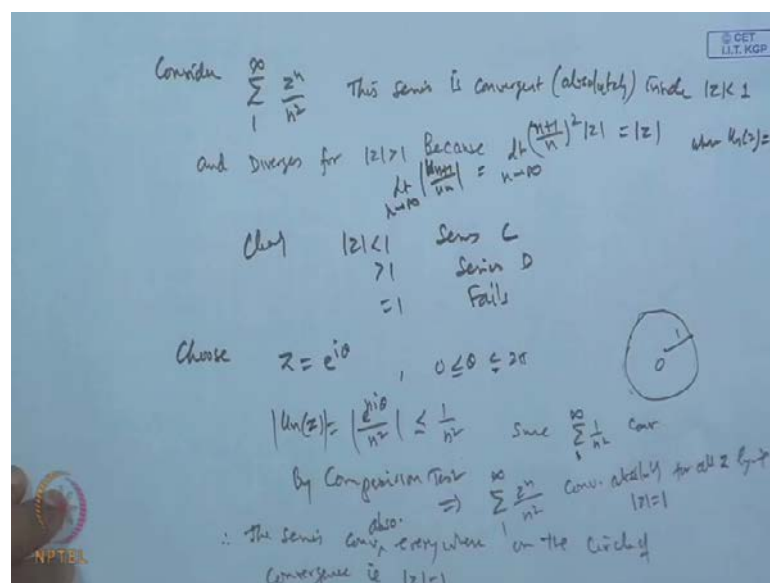 © CET
I.I.T. KGP
Consider ∞ Σ 1 zⁿ/n² This series is convergent (absolutely) inside |z|< 1
and Diverges for |z|>1 Because lt n→∞ |un+1/un| = lt n→∞ (n+1/n)² |z| = |z| where un(z)=
|z|<1 Series C
>1 Series D
=1 Fails
Choose z = e^{iθ} , 0 ≤ θ ≤ 2π
1
0
|un(z)| = |e^{niθ}/n²| ≤ 1/n² Since ∞ Σ 1 1/n² Conv
By Comparison Test ⇒ ∞ Σ 1 zⁿ/n² Conv. absolutely for all z
|z|=1
∴ the series conv abso. everywhere on the circle of
Convergence ie |z|=1
NPTEL